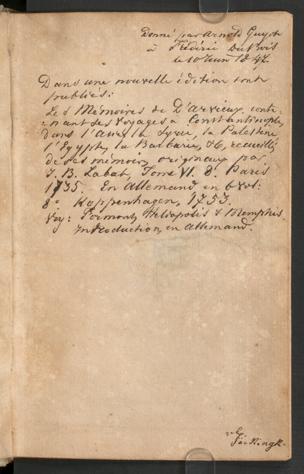 Donné par Arnold Guyot
à Frédéric DuBois
le 10 Juin 1847.
Dans une nouvelle édition sont
publiés:
Les Mémoires de D'Arvieux, conte-
nant des voyages à Constantinople,
dans l'Asie, la Syrie, la Palestine
l'Egypte, la Barbarie, &c, recueillis
de ses mémoires originaux par
J. B. Labat, Tome VI. 8° Paris
1735. En Allemand en 6 vol:
8° Koppenhagen, 1753.
Voy: Heliopolis & Memphis.
Introduction, en Allemand.